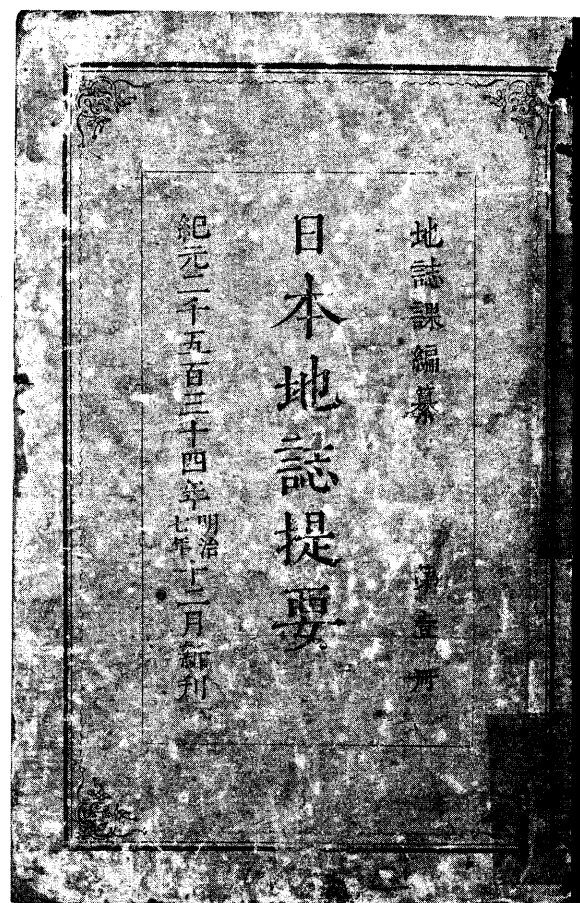 地誌課編纂　第壹冊
日本地誌提要
紀元二千五百三十四年明治七年十二月新刊